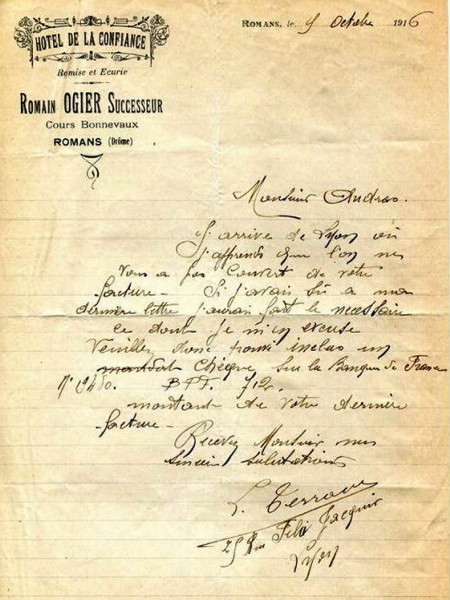 HOTEL DE LA CONFIANCE
Remise et Ecurie
ROMAIN OGIER SUCCESSEUR
Cours Bonnevaux
ROMANS (Drôme)
ROMANS, le 9 Octobre 1916
Monsieur Andras.
J'arrive de Lyon où
j'apprends que l'on ne
vous a pas couvert de votre
facture - Si j'avais sû a ma
dernière lettre j'aurais fait le necessaire
ce dont je m'en excuse
Veuillez donc inclus un
mandat Chèque sur la Banque de France
montant de votre dernière
facture -
Recevez Monsieur mes
salutations
Lyon